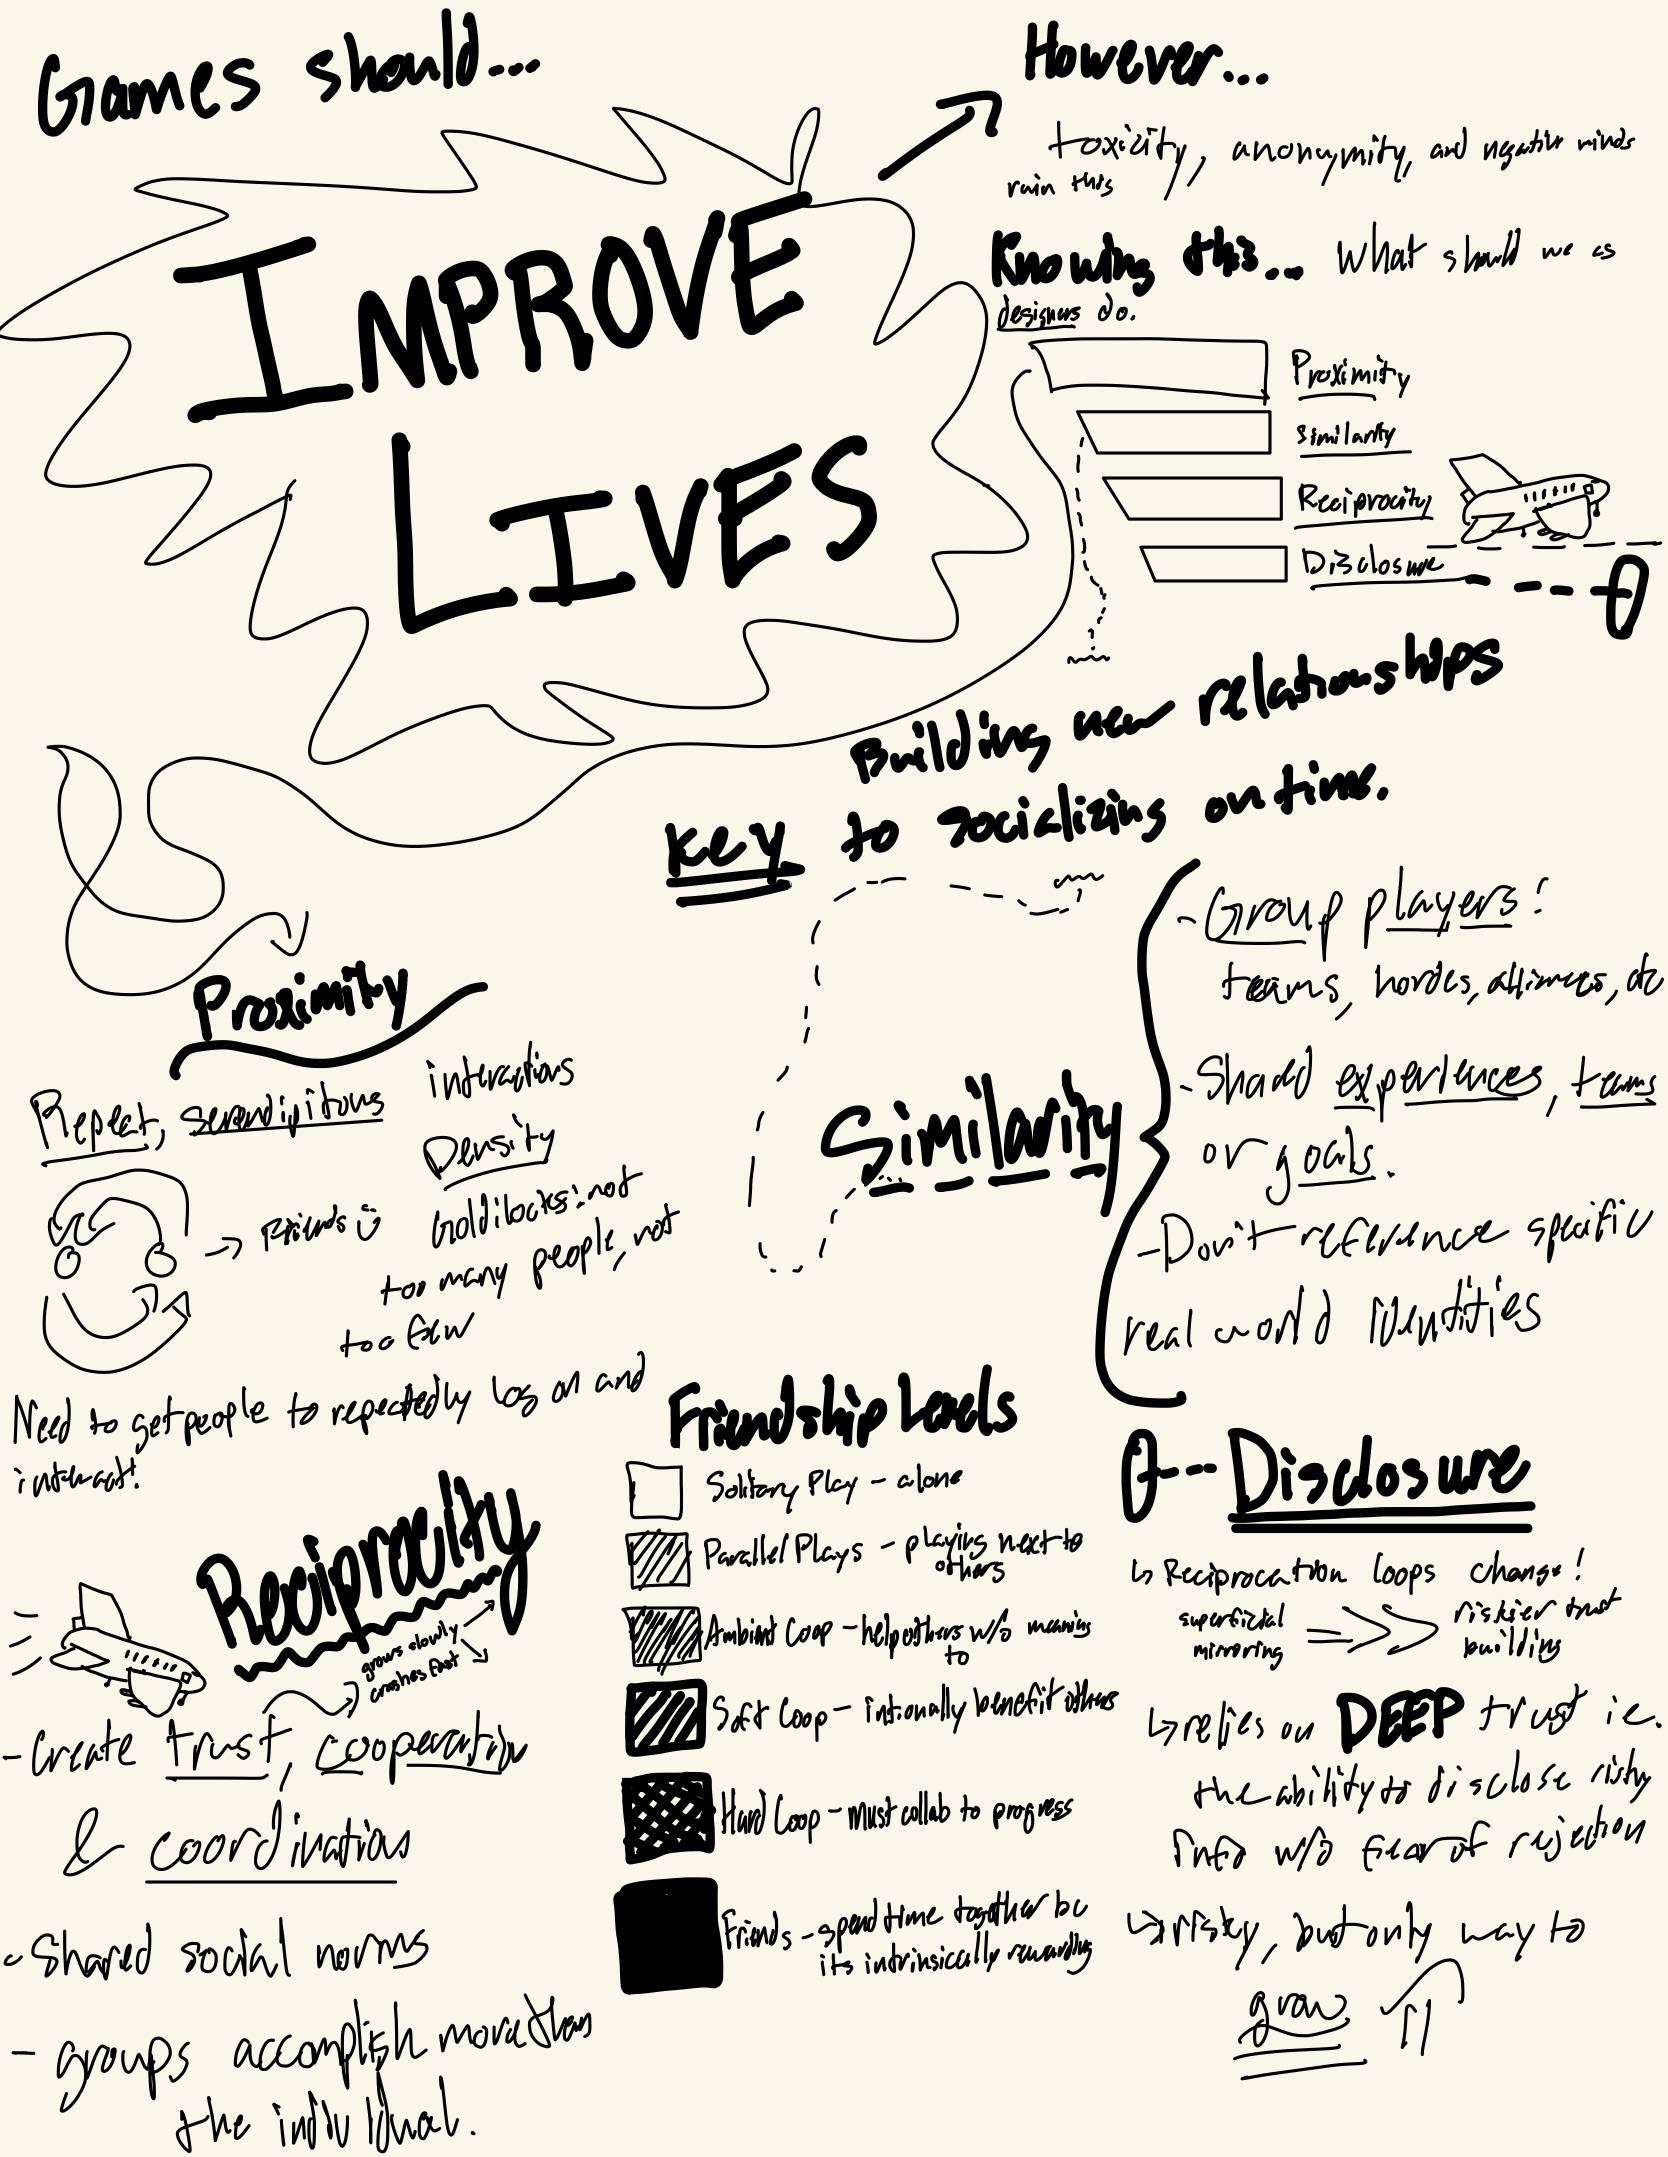 Games should...
IMPROVE
LIVES
However...
toxicity, anonymity, and negative minds
ruin this
Knowing this... What should we as
designers do.
Proximity
Similarity
Reciprocity
Disclosure
Building new relationships
key to socializing on time.
Proximity
Repeat, serendipitous interactions
Density
→ Friends :)
Goldilocks: not
too many people, not
too few
Need to get people to repeatedly log on and
interact!
Similarity
- Group players!
teams, hordes, alliances, etc
- Shared experiences, teams
or goals.
- Don't reference specific
real world identities
Reciprocity
grows slowly
crashes fast
- Create trust, cooperation
& coordination
- Shared social norms
- groups accomplish more than
the individual.
Friendship Levels
Solitary Play - alone
Parallel Plays - playing next to
others
Ambient Coop - help others w/o meaning
to
Soft Coop - intionally benefit others
Hard Coop - Must collab to progress
Friends - spend time together bc
its intrinsically rewarding
Disclosure
↳ Reciprocation loops change!
superficial
mirroring
riskier trust
building
↳ relies on DEEP trust ie.
the ability to disclose risky
info w/o fear of rejection
↳ risky, but only way to
grow